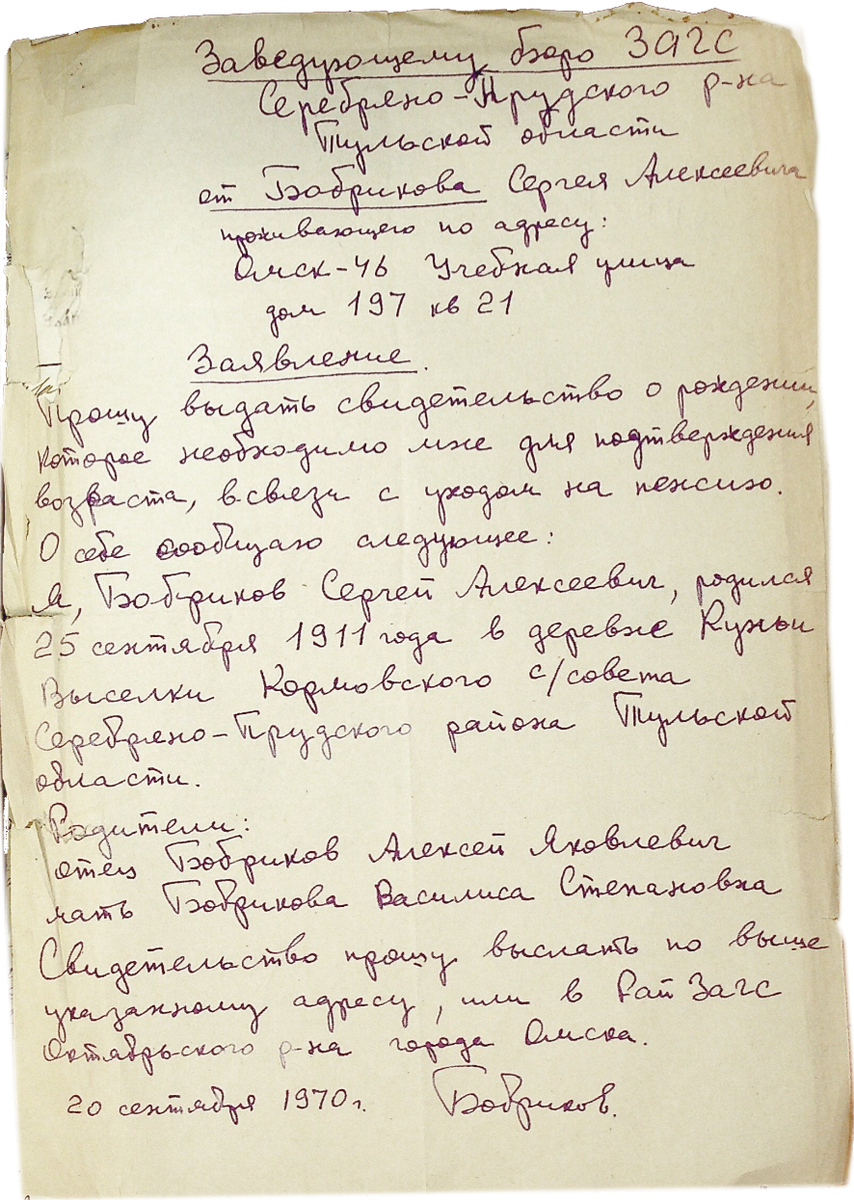 Заведующему бюро ЗАГС
Серебряно-Прудского р-на
Тульской области
от Бобрикова Сергея Алексеевича
проживающего по адресу:
Омск-46 Учебная улица
дом 197 кв 21
Заявление.
Прошу выдать свидетельство о рождении,
которое необходимо мне для подтверждения
возраста, в связи с уходом на пенсию.
О себе сообщаю следующее:
Я, Бобриков Сергей Алексеевич, родился
25 сентября 1911 года в деревне Куньи
Выселки Кормовского с/совета
Серебряно-Прудского района Тульской
области.
Родители:
отец Бобриков Алексей Яковлевич
мать Бобрикова Василиса Степановна
Свидетельство прошу выслать по выше
указанному адресу, или в РайЗагс
Октябрьского р-на города Омска.
20 сентября 1970г. Бобриков.